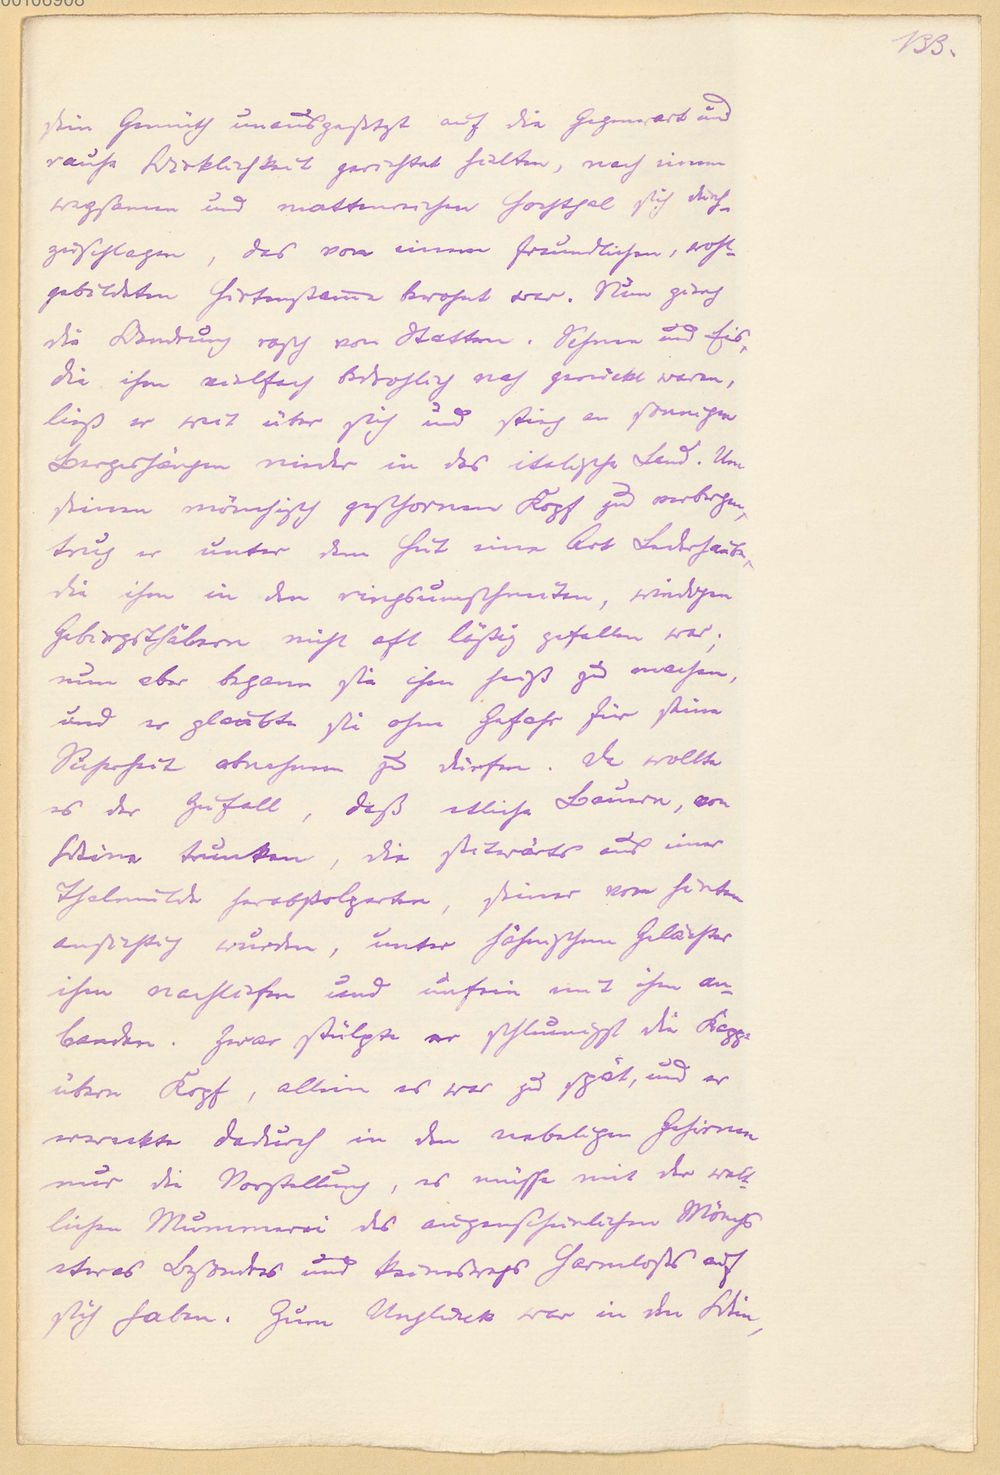 00106908
133.
sein Gemüth unausgesetzt auf die Gegenwart und
rauhe Wirklichkeit gerichtet halten, nach einem
wegsamen und mattenreichen Hochthal sich durch-
zuschlagen, das von einem freundlichen, wohl-
gebildeten Hirtenstamme bewohnt war. Nun ging
die Wandrung rasch von Statten. Schnee und Eis,
die ihm vielfach bedrohlich nah gerückt waren,
ließ er weit über sich und stieg an sonnigen
Bergeshängen nieder in das italische Land. Um
seinen mönchisch geschornen Kopf zu verbergen,
trug er unter dem Hut eine Art Lederhaube,
die ihm in den ringsumschneiten, windigen
Gebirgsthälern nicht oft lästig gefallen war;
nun aber begann sie ihm heiß zu machen,
und er glaubte sie ohne Gefahr für seine
Sicherheit abnehmen zu dürfen. Da wollte
es der Zufall, daß etliche Bauern, von
Weine trunken, die seitwärts aus einer
Thalmulde herabstolperten, seiner von hinten
ansichtig wurden, unter höhnischem Gelächter
ihm nachliefen und unfein mit ihm an-
banden. Zwar stülpte er schleunigst die Kappe
übern Kopf, allein es war zu spät, und er
erweckte dadurch in den nebeligen Gehirnen
nur die Vorstellung, es müsse mit der welt-
lichen Mummerei des augenscheinlichen Mönchs
etwas Besondres und keineswegs Harmloses auf
sich haben. Zum Unglück war in den Wein,